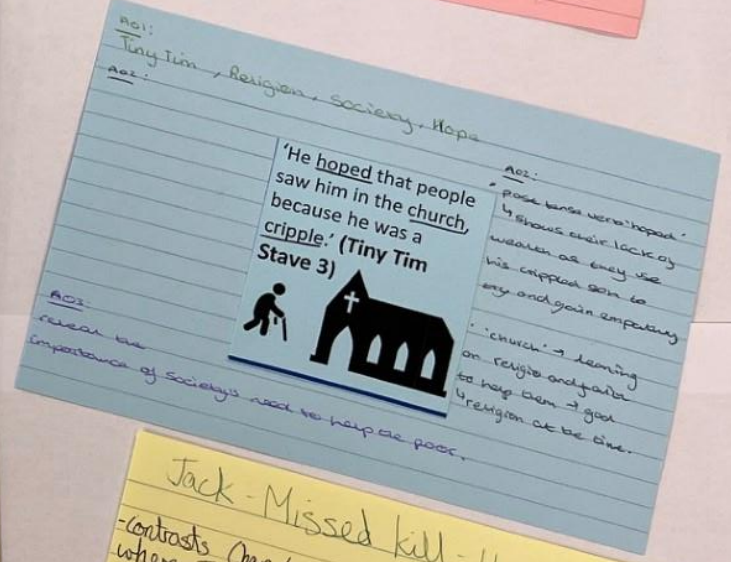 AO1:
Tiny Tim, Religion, Society, Hope
AO2:
'He hoped that people
saw him in the church,
because he was a
cripple.' (Tiny Tim
Stave 3)
AO2:
• past tense verb 'hoped'
↳ shows their lack of
wealth as they use
his crippled son to
try and gain empathy
• 'church' → leaning
on religion and
to help them → god
↳ religion at the time.
AO3:
reveal the
importance of society's need to help the poor.
Jack - Missed kill -
- contrasts
where